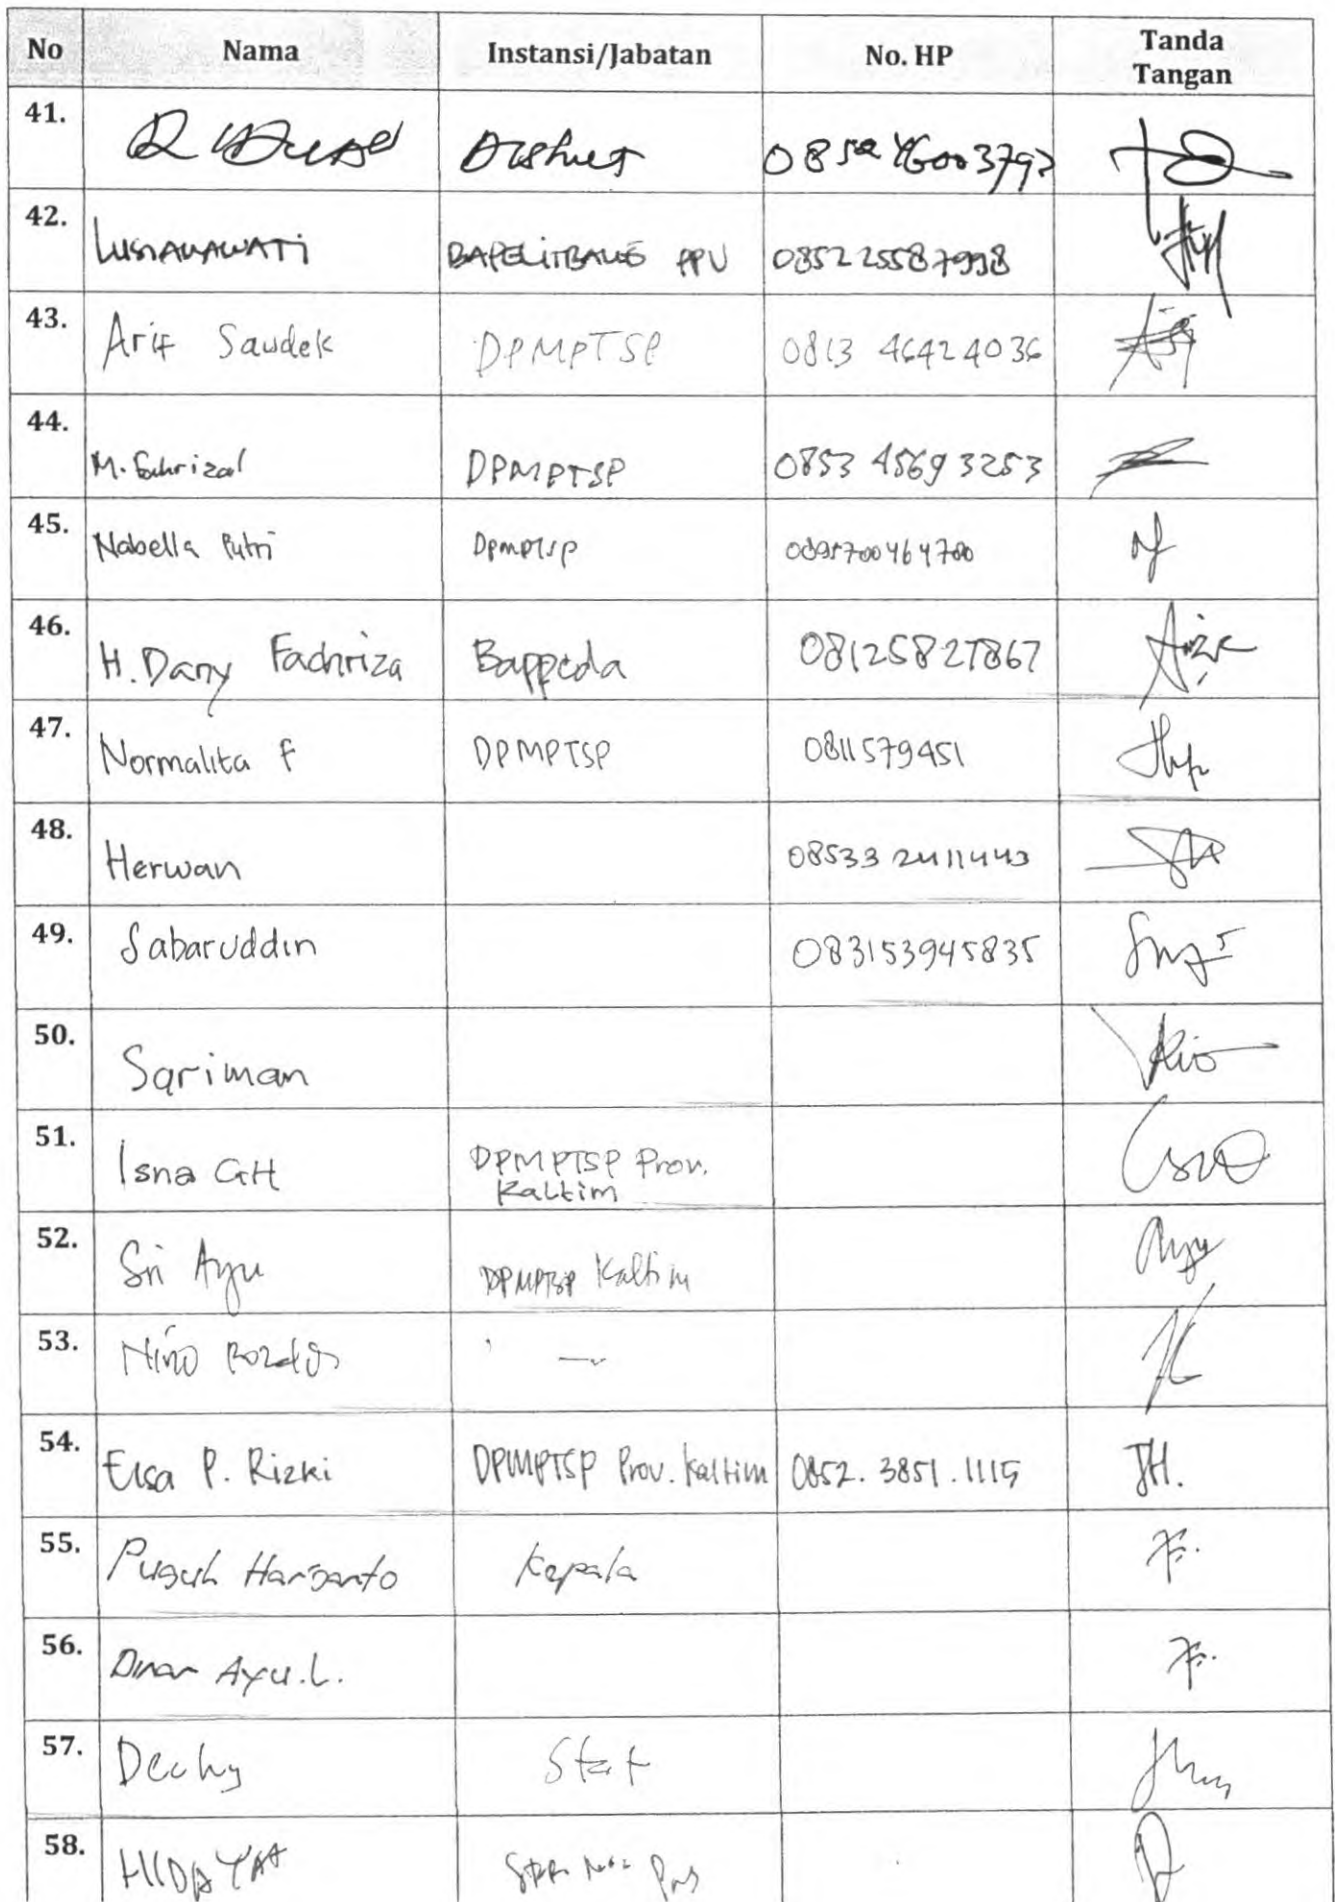 No Nama Instansi/Jabatan No. HP Tanda
Tangan
41.
42. LUSIANAWATI BAPELITBANG PPU 085225587998
43. Arif Saudek DPMPTSP 0813 46424036
44. M. Fahrizal DPMPTSP 0853 4569 3253
45. Nabella Putri DPMPTSP 0895700464780
46. H. Dany Fachriza Bappeda 08125827867
47. Normalita F DPMPTSP 0811579451
48. Herwan 08533 2411443
49. Sabaruddin 083153945835
50. Sariman
51. Isna GH DPMPTSP Prov.
Kaltim
52. Sri Ayu DPMPTSP Kaltim
53. Nino
54. Elsa P. Rizki DPMPTSP Prov. Kaltim 0852. 3851. 1115
55. Puguh Harjanto Kepala
56. Dinar Ayu.L.
57. Decky Staf
58. HIDAYAT